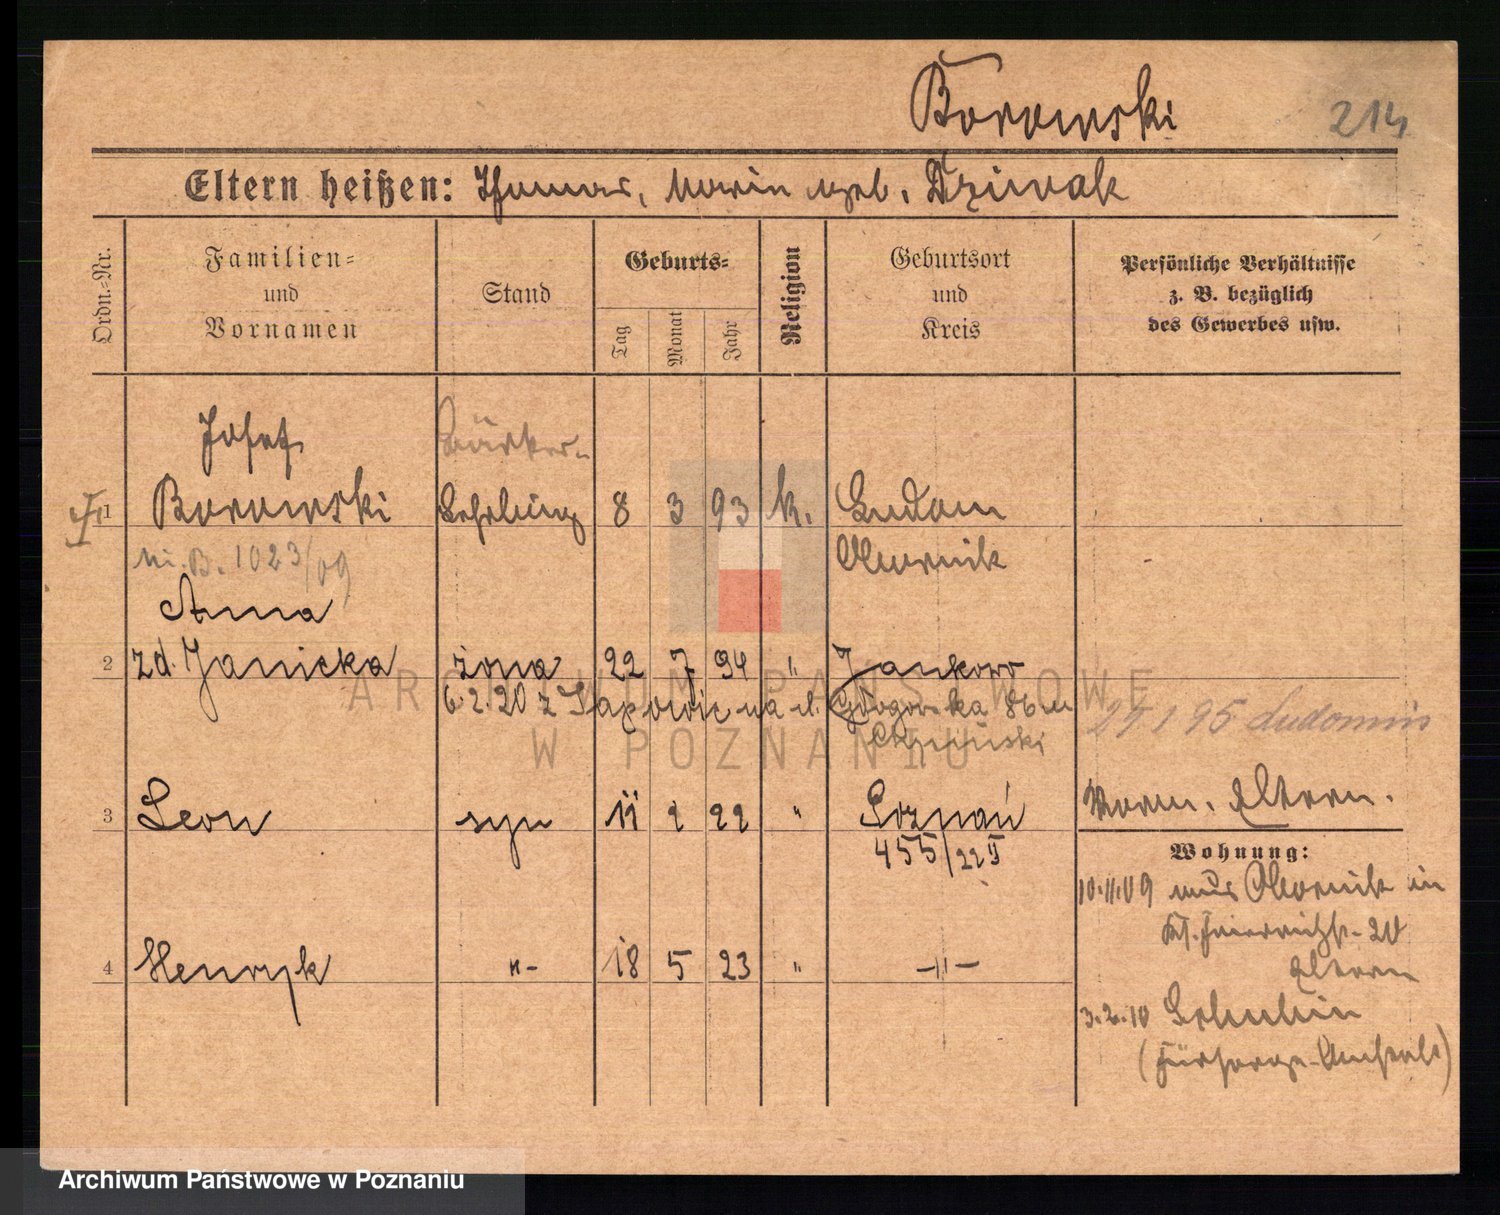 Borowski
214
Eltern heißen: Thomas, Marie geb. Dziwak
Ordn.-Nr.
Familien-
und
Vornamen
Stand
Geburts-
Tag
Monat
Jahr
Religion
Geburtsort
und
Kreis
Persönliche Verhältnisse
z. B. bezüglich
des Gewerbes usw.
Josef
1 Borowski Lehrling 8 3 93 k. Ludom
Obornik
1023/09
Anna
2 zd. Janicka żona 22 7 94 " Jankowo
6.2.20 z na 86
29 1 95 Ludomis
3 Leon syn 11 2 22 " Poznań
455/22 II
Vorm. Eltern.
Wohnung:
10.11.09 aus Obornik in
20
Eltern
4 Henryk -"- 18 5 23 " -"-
3.2.10
(Fürsorge-Anstalt)
ARCHIWUM PAŃSTWOWE
W POZNANIU
Archiwum Państwowe w Poznaniu